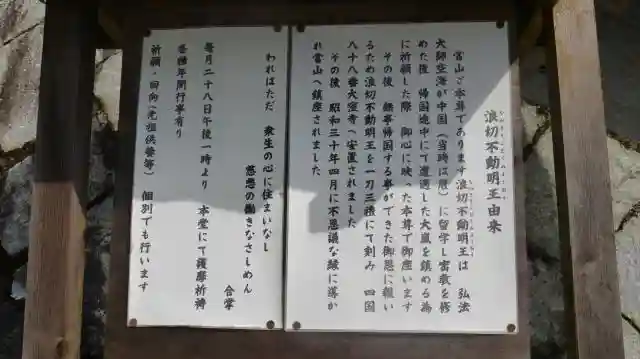 浪切不動明王由来
なみきりふどうみょうおう
当山ご本尊であります浪切不動明王は 弘法
大師空海が中国（当時は唐）に留学し密教を修
めた後 帰国途中にて遭遇した大嵐を鎮める為
に祈願した際 御心に映った本尊で御座います
その後 無事帰国する事ができた御恩に報い
るため浪切不動明王を一刀三禮にて刻み 四国
八十八番大窪寺へ安置されました
その後 昭和三十年四月に不思議な縁に導か
れ当山へ鎮座されました
われはただ 衆生の心に住まいなし
慈悲の働きなさしめん
合掌
毎月二十八日午後一時より 本堂にて護摩祈祷
春秋年間行事有り
祈願・回向（先祖供養等） 個別でも行います